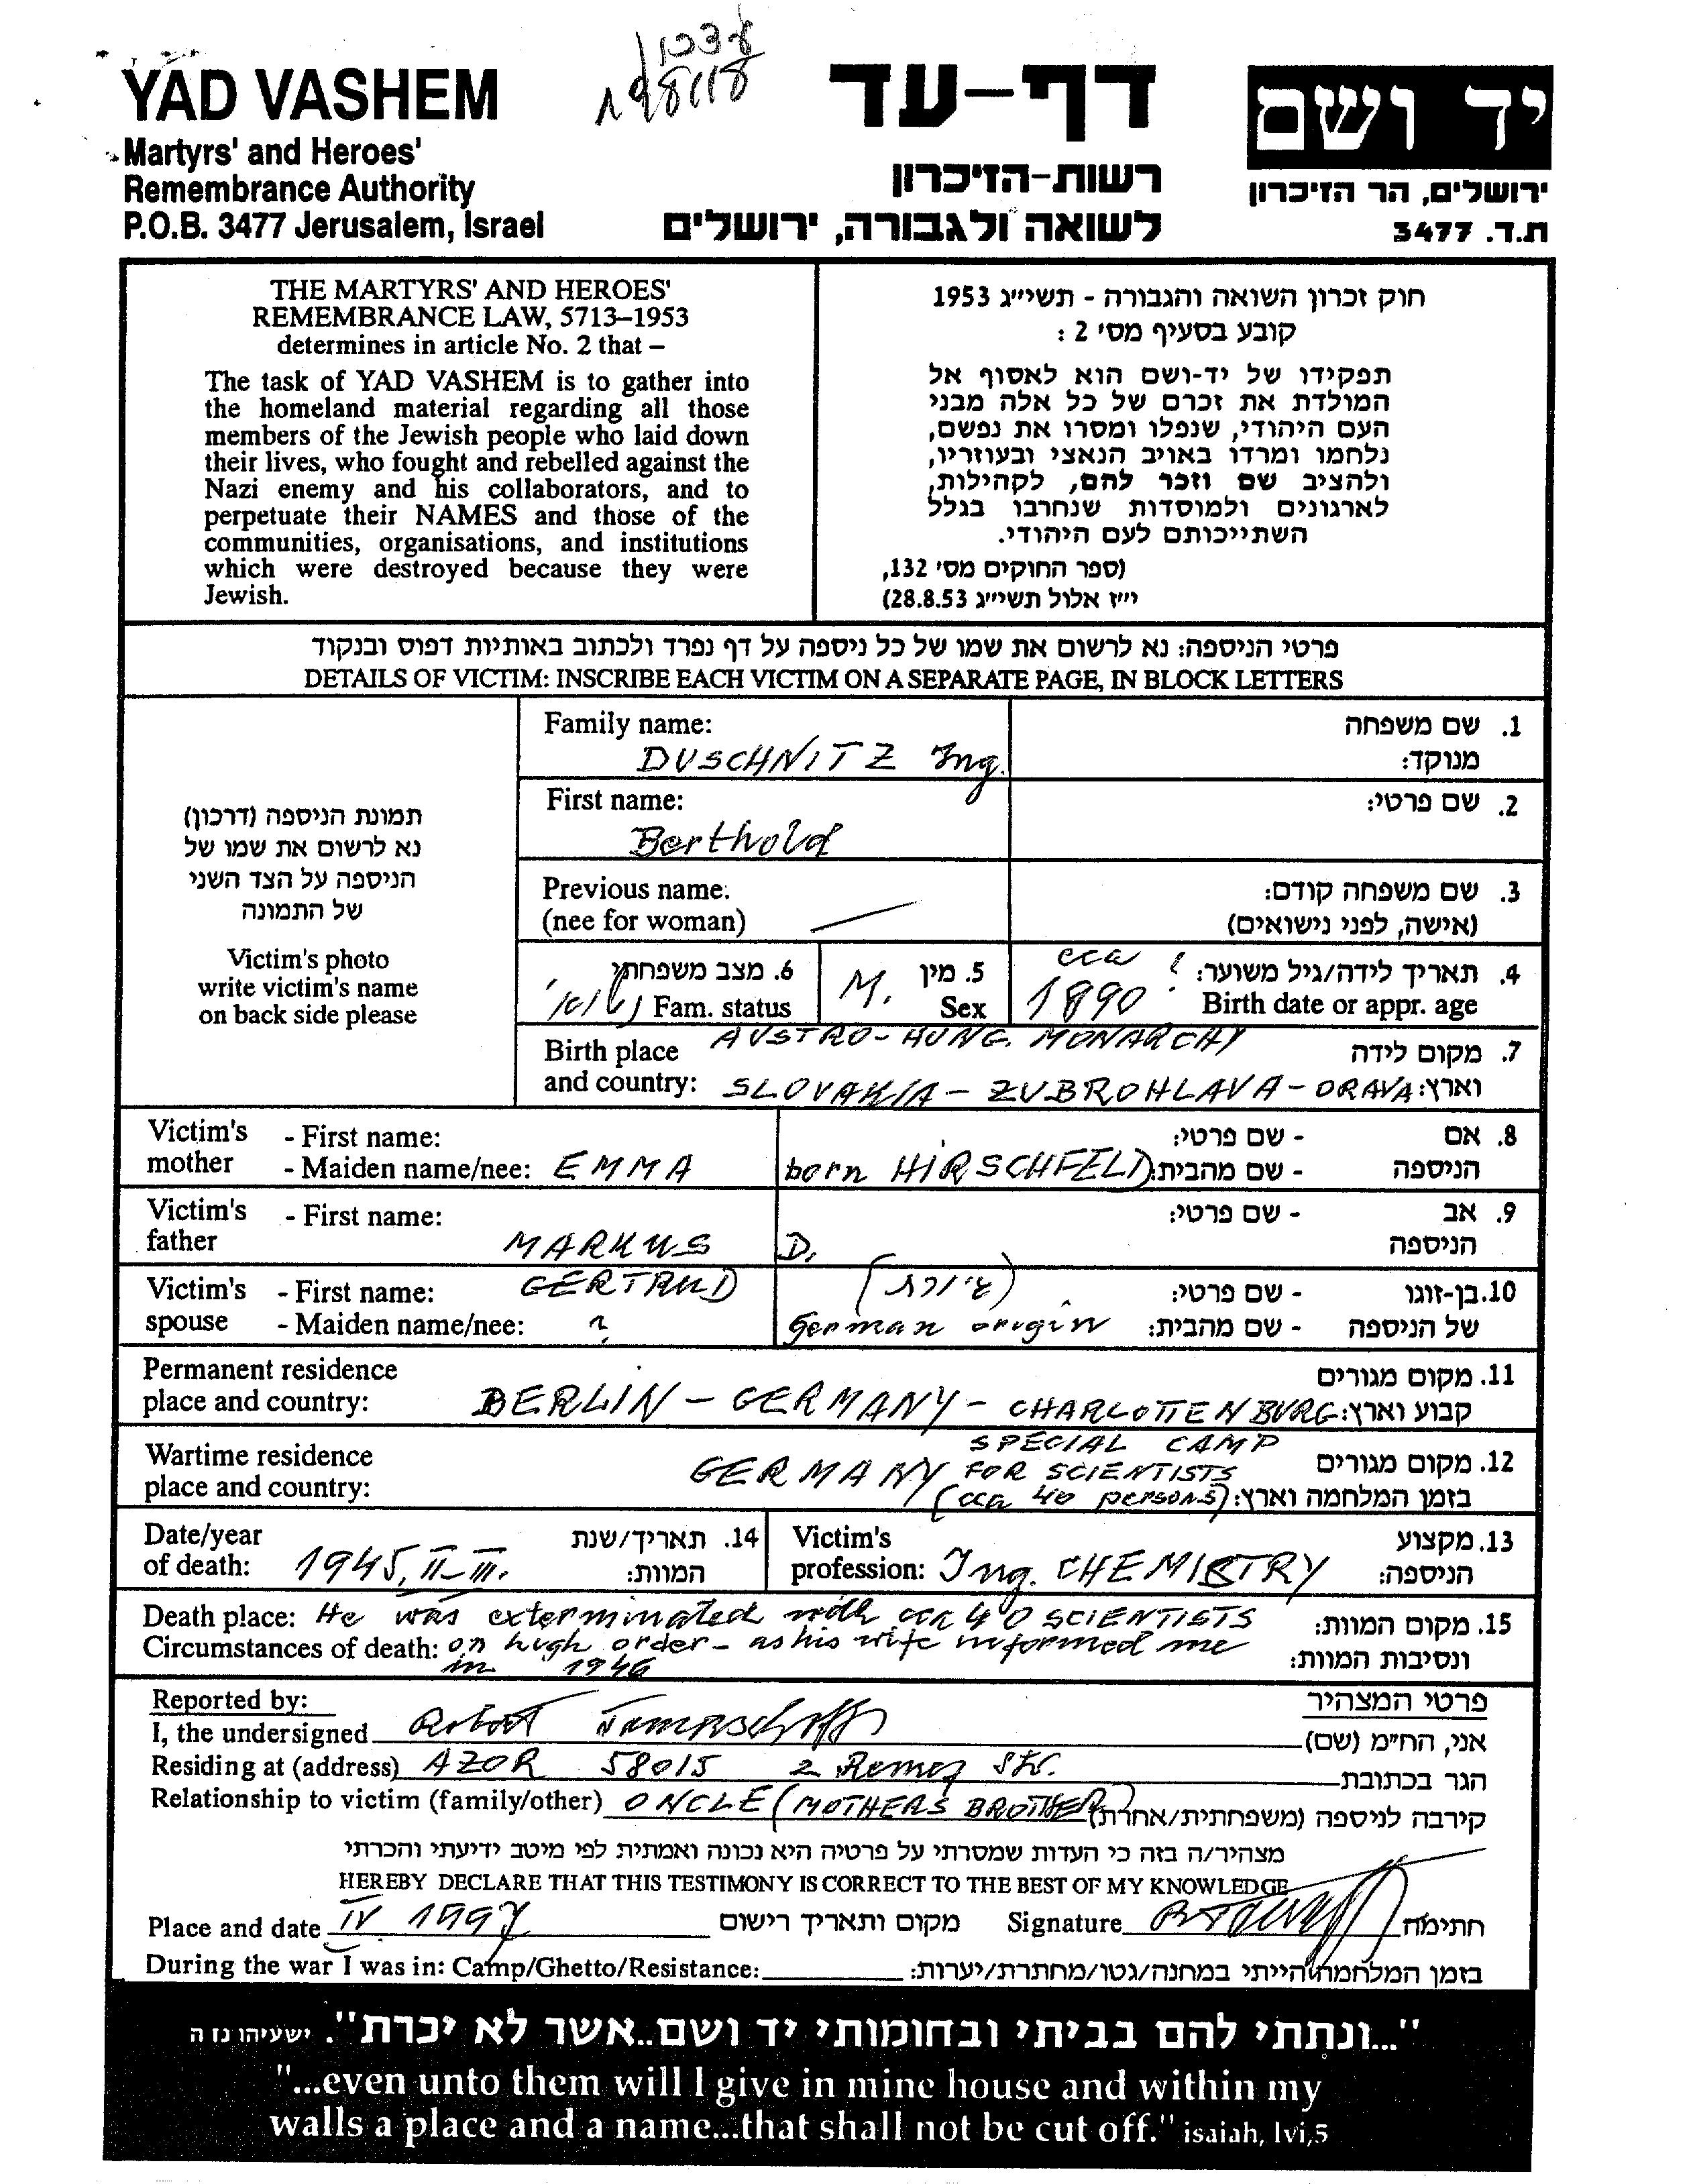 YAD VASHEM
Martyrs' and Heroes'
Remembrance Authority
P.O.B. 3477 Jerusalem, Israel
198118
דף-עד
רשות-הזיכרון
לשואה ולגבורה, ירושלים
יד ושם
ירושלים, הר הזיכרון
ת.ד. 3477
THE MARTYRS' AND HEROES'
REMEMBRANCE LAW, 5713–1953
determines in article No. 2 that –
The task of YAD VASHEM is to gather into
the homeland material regarding all those
members of the Jewish people who laid down
their lives, who fought and rebelled against the
Nazi enemy and his collaborators, and to
perpetuate their NAMES and those of the
communities, organisations, and institutions
which were destroyed because they were
Jewish.
חוק זכרון השואה והגבורה - תשי״ג 1953
קובע בסעיף מס׳ 2 :
תפקידו של יד-ושם הוא לאסוף אל
המולדת את זכרם של כל אלה מבני
העם היהודי, שנפלו ומסרו את נפשם,
נלחמו ומרדו באויב הנאצי ובעוזריו,
ולהציב שם וזכר להם, לקהילות,
לארגונים ולמוסדות שנחרבו בגלל
השתייכותם לעם היהודי.
(ספר החוקים מס׳ 132,
י״ז אלול תשי״ג 28.8.53)
פרטי הניספה: נא לרשום את שמו של כל ניספה על דף נפרד ולכתוב באותיות דפוס ובנקוד
DETAILS OF VICTIM: INSCRIBE EACH VICTIM ON A SEPARATE PAGE, IN BLOCK LETTERS
תמונת הניספה (דרכון)
נא לרשום את שמו של
הניספה על הצד השני
של התמונה
Victim's photo
write victim's name
on back side please
Family name: 1. שם משפחה
DUSCHNITZ Ing. מנוקד:
First name: 2. שם פרטי:
Berthold
Previous name: 3. שם משפחה קודם:
(nee for woman) (אישה, לפני נישואים)
6. מצב משפחתי 5. מין cca ? 4. תאריך לידה/גיל משוער:
Fam. status M. Sex 1890 Birth date or appr. age
Birth place AUSTRO-HUNG. MONARCHY 7. מקום לידה
and country: SLOVAKIA – ZUBROHLAVA – ORAVA וארץ:
Victim's - First name: - שם פרטי: 8. אם
mother - Maiden name/nee: EMMA born HIRSCHFELD - שם מהבית: הניספה
Victim's - First name: - שם פרטי: 9. אב
father MARKUS D. הניספה
Victim's - First name: GERTRUD - שם פרטי: 10. בן-זוגו
spouse - Maiden name/nee: ? German origin - שם מהבית: של הניספה
Permanent residence 11. מקום מגורים
place and country: BERLIN – GERMANY – CHARLOTTENBURG קבוע וארץ:
Wartime residence SPECIAL CAMP 12. מקום מגורים
place and country: GERMANY FOR SCIENTISTS
(cca 40 persons) בזמן המלחמה וארץ:
Date/year 14. תאריך/שנת Victim's 13. מקצוע
of death: 1945, II–III. המוות: profession: Ing. CHEMISTRY הניספה:
Death place: He was exterminated with cca 40 SCIENTISTS 15. מקום המוות:
Circumstances of death: on high order – as his wife informed me ונסיבות המוות:
in 1946
Reported by: פרטי המצהיר
I, the undersigned Robert אני, הח״מ (שם)
Residing at (address) AZOR 58015 2 Remez Str. הגר בכתובת
Relationship to victim (family/other) ONCLE (MOTHERS BROTHER) קירבה לניספה (משפחתית/אחרת)
מצהיר/ה בזה כי העדות שמסרתי על פרטיה היא נכונה ואמתית לפי מיטב ידיעתי והכרתי
HEREBY DECLARE THAT THIS TESTIMONY IS CORRECT TO THE BEST OF MY KNOWLEDGE
Place and date IV 1997 מקום ותאריך רישום Signature חתימה
During the war I was in: Camp/Ghetto/Resistance: בזמן המלחמה הייתי במחנה/גטו/מחתרת/יערות:
"...ונתתי להם בביתי ובחומותי יד ושם..אשר לא יכרת". ישעיהו נו ה
"...even unto them will I give in mine house and within my
walls a place and a name...that shall not be cut off." isaiah, lvi,5